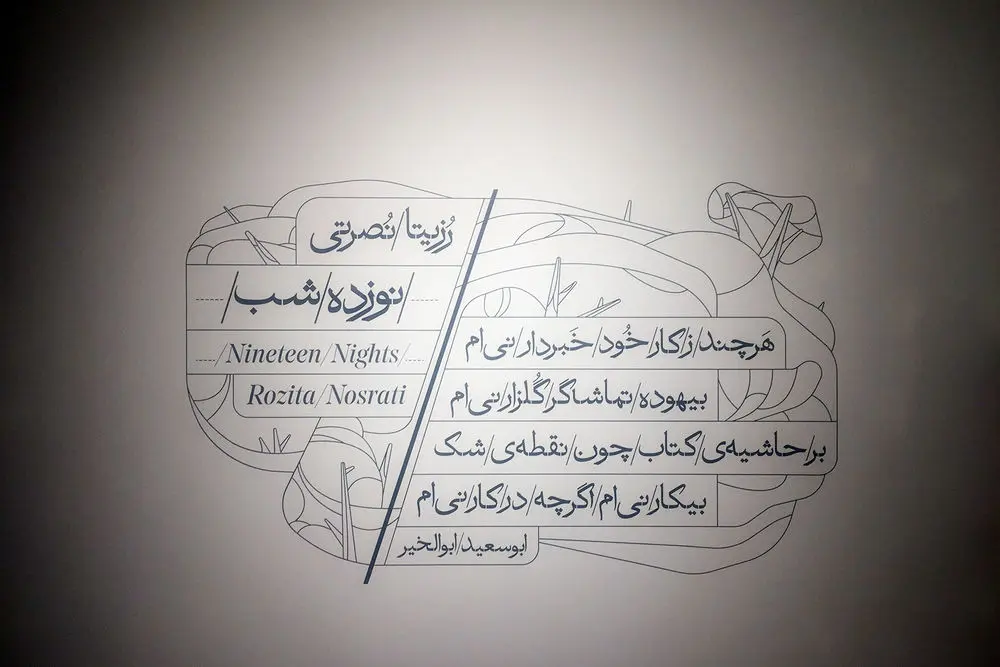 رُزیتا/نُصرتی
/نوزده/شب/
/Nineteen/Nights/
Rozita/Nosrati
هَرچند/ز/کار/خُود/خَبردار/نی‌ام
بیهوده/تماشاگر/گُلزار/نی‌ام
بر/حاشیه‌ی/کتاب/چون/نقطه‌ی/شک
بیکار/نی‌ام/اگرچه/در/کار/نی‌ام
ابوسعید/ابوالخیر